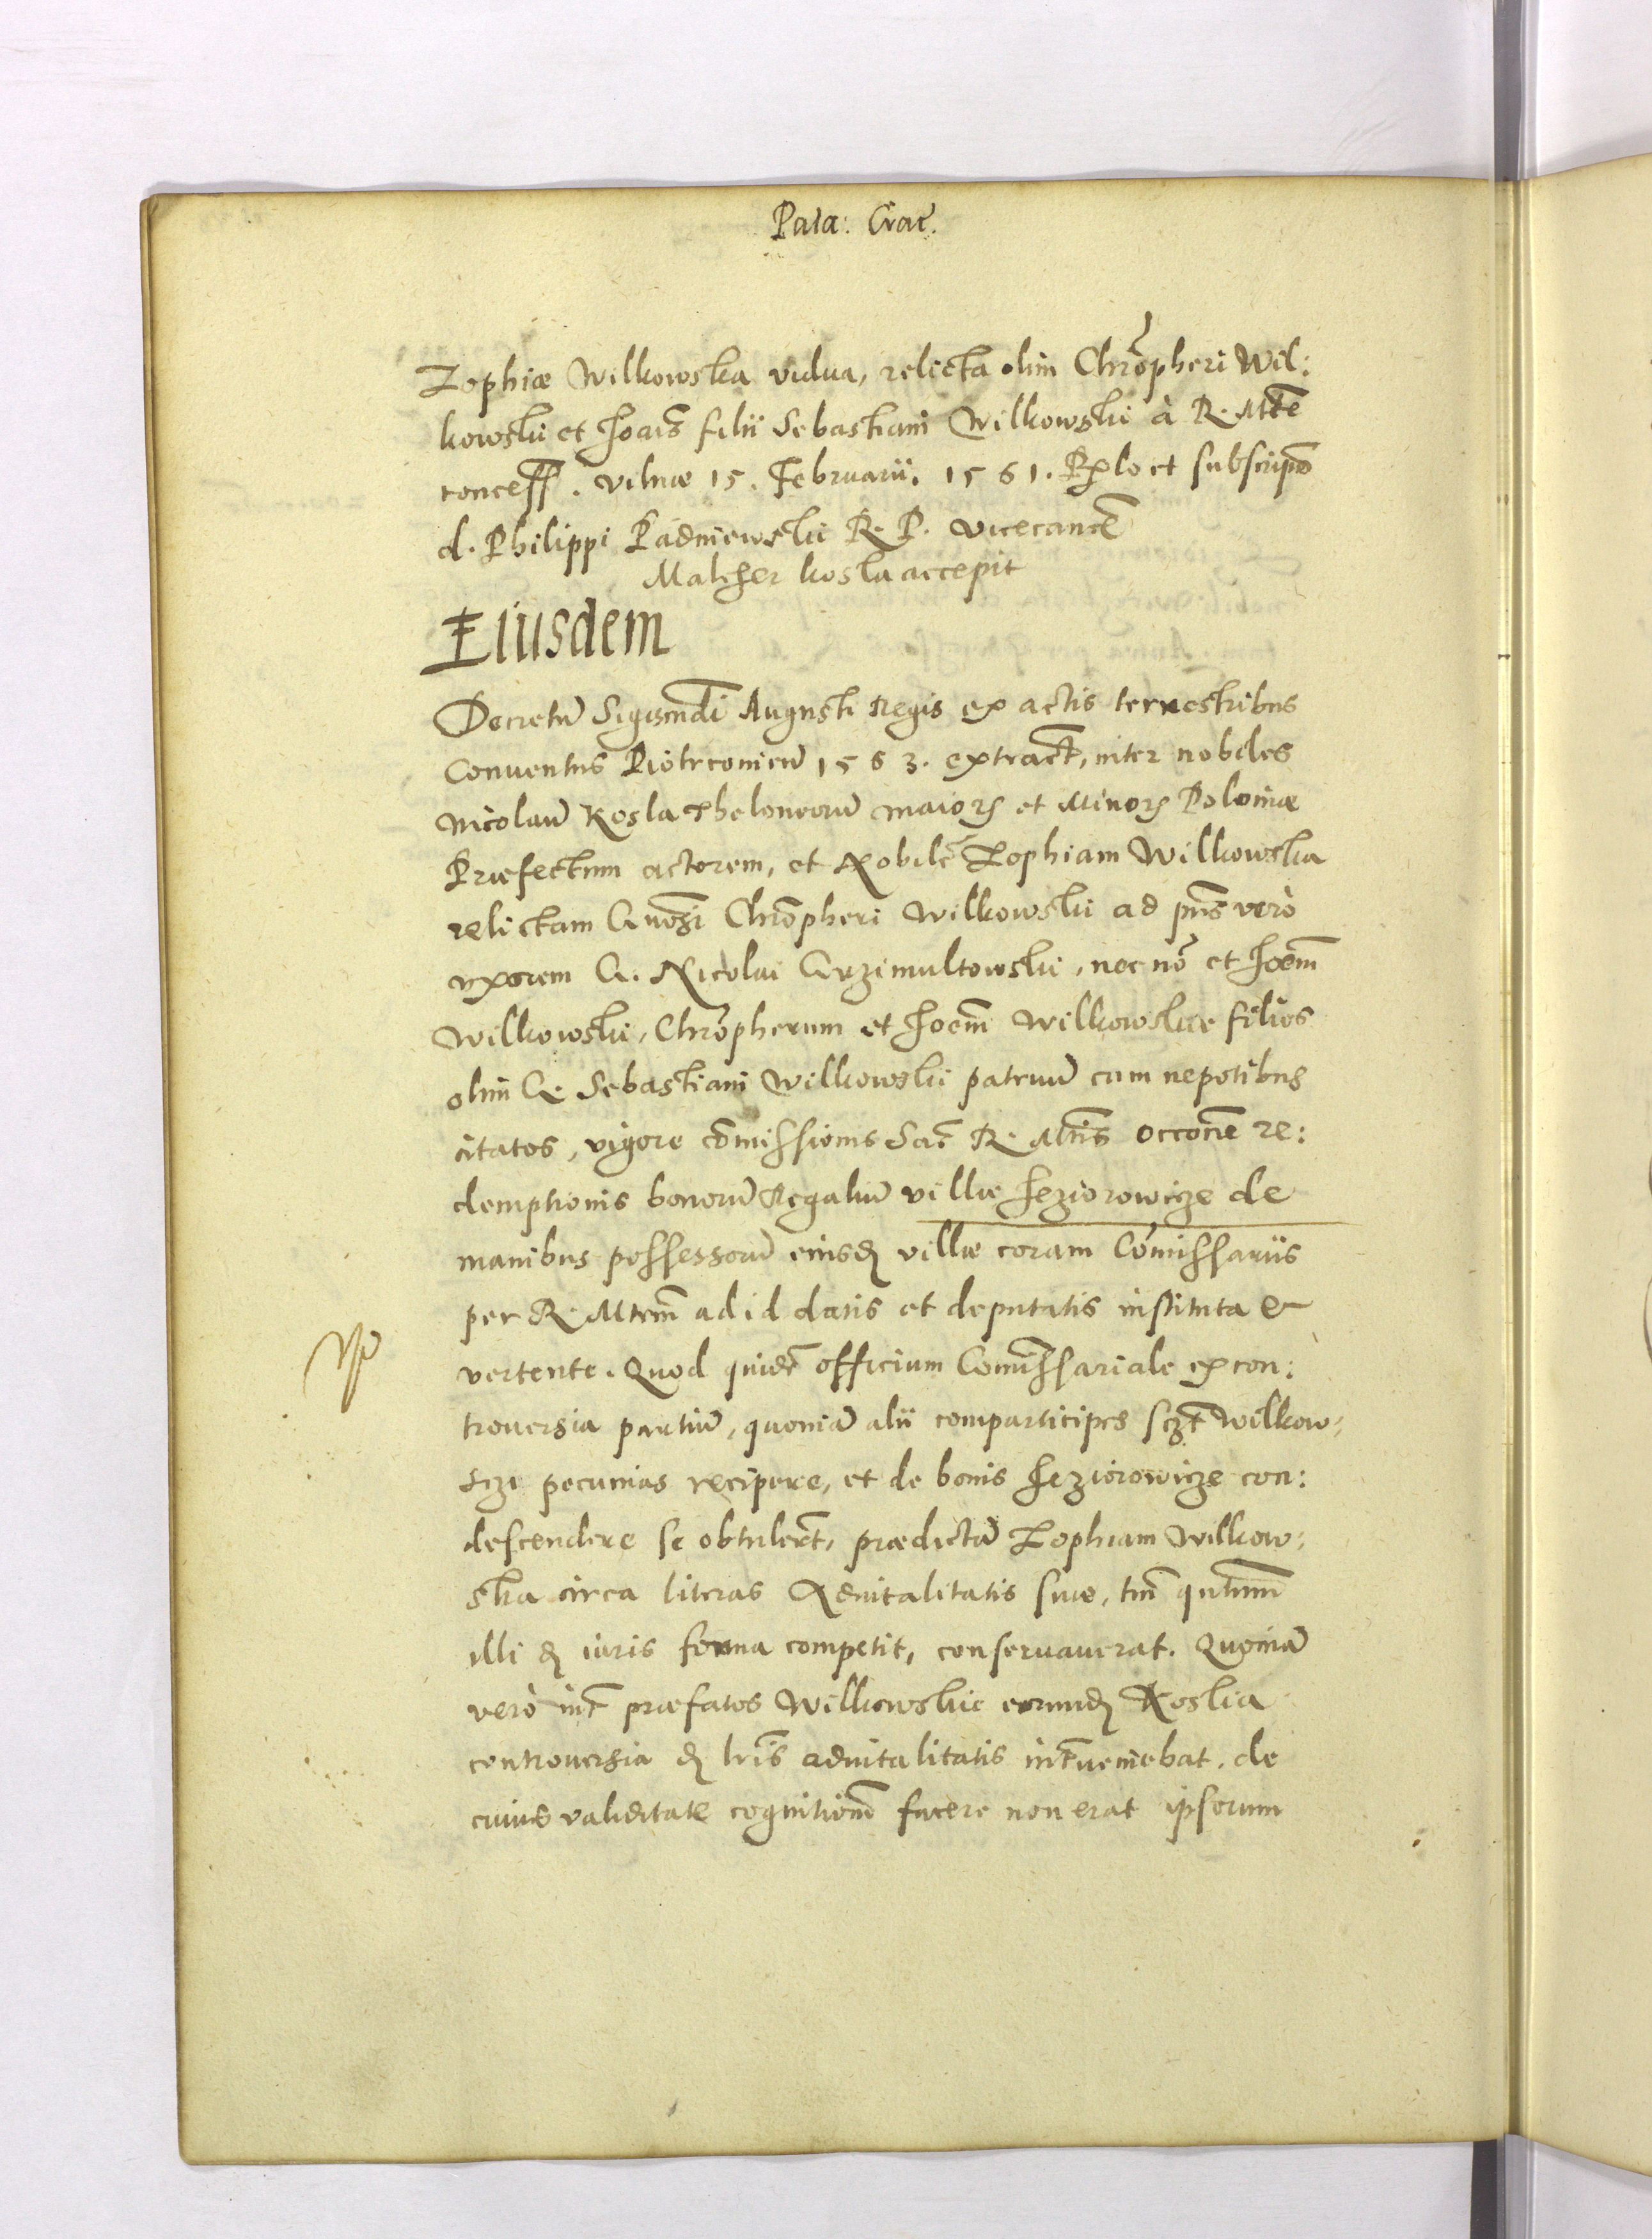 Pala: Crac.
Zophiæ Wilkowska vidua, relicta olim Chrõpheri Wil:
kowski et Joãis filii Sebastiani Wilkowski à R. Mtẽ
concess. Vilnæ 15. Februarii. 1561. et subscripõ
d. Philippi Padniewski R. P. vicecancẽ
Malcher kosla accepit
Eiusdem
Decretũ Sigismũdi Augusti Regis ex actis terrestribus
Conuentus Piotrconieñ 1563. extract, inter nobiles
Nicolaũ Kosla Theloneorũ maioris et Minoris Poloniæ
Præfectum actorem, et Nobilẽ Zophiam Wilkowska
relictam Gñosi Chrõpheri Wilkowski ad pñs verò
uxorem G. Nicolai Grzimultowski, nec nõ et Joẽm
Wilkowski, Chrõpherum et Joẽm Wilkowskie filios
olim G. Sebastiani Wilkowski patruũ cum nepotibus
citatos, vigore cõmissionis Sac̃ R. Mtis occõne re:
demptionis bonorũ Regaliũ villæ Jeziorowicze de
manibus possessorũ eiusdẽ villæ coram Cõmissariis
per R. Mtem ad id datis et deputatis instituta &
vertente. Quod quidẽ officium Comissariale ex con:
trouersia partiũ, quoniã alii comparticipes sczt Wilkow:
sczi pecunias recipere, et de bonis Jeziorowicze con:
descendere se obtulerт, prædictã Zophiam Wilkow:
ska circa literas Aduitalitatis suæ, tm̃ quñtum
illi de iuris forma competit, conseruauerat. Quoniã
verò int̃ præfatos Wilkowskie eorumdẽ Koslia
controuersia de lris aduitalitatis int̃ueniebat. de
cuius validitate cognitionẽ facere non erat ipsorum